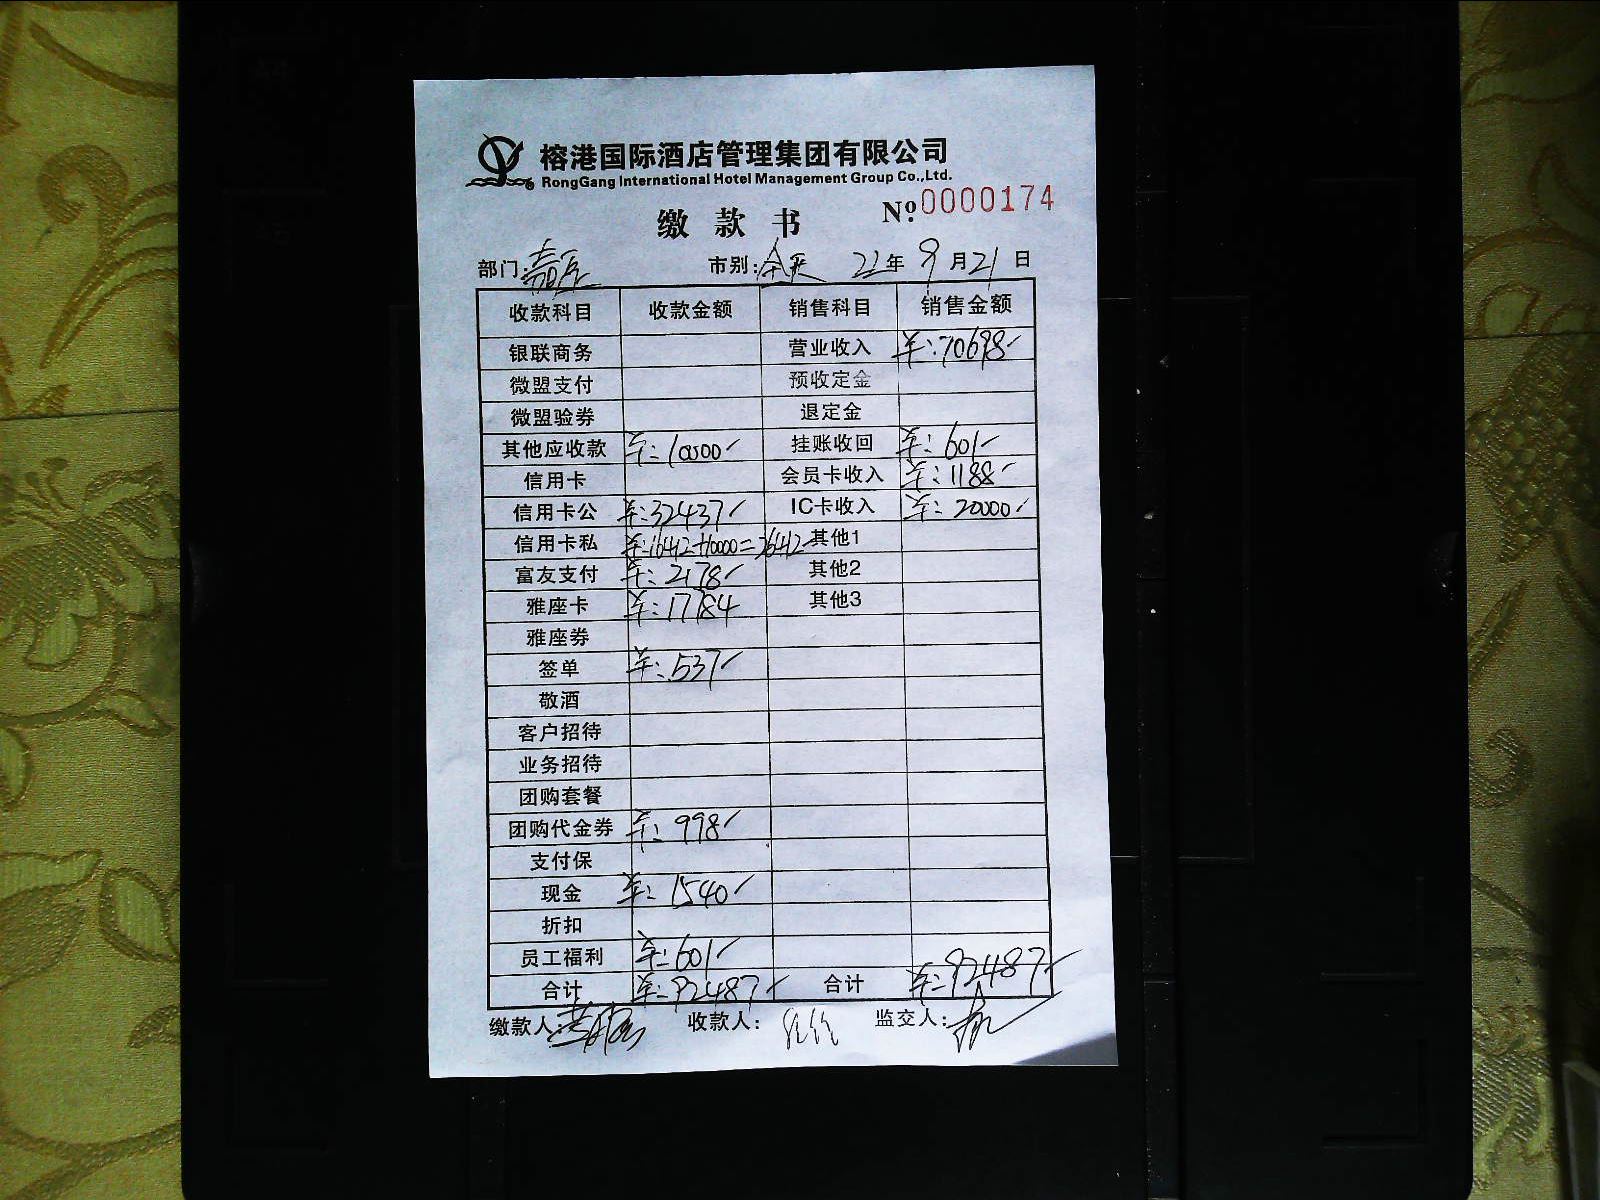 榕港国际酒店管理集团有限公司
RongGang International Hotel Management Group Co.,Ltd.
缴款书 Nº:0000174
部门: 市别:全天 22年9月21日
收款科目 收款金额 销售科目 销售金额
银联商务 营业收入 ¥:70698
微盟支付 预收定金
微盟验券 退定金
其他应收款 ¥:10000 挂账收回 ¥:601
信用卡 会员卡收入 ¥:1188
信用卡公 ¥:32437 IC卡收入 ¥:20000
信用卡私 ¥:16412+10000=26412 其他1
富友支付 ¥:2178 其他2
雅座卡 ¥:17784 其他3
雅座券
签单 ¥:537
敬酒
客户招待
业务招待
团购套餐
团购代金券 ¥:998
支付保
现金 ¥:1540
折扣
员工福利 ¥:601
合计 ¥:92487 合计 ¥:92487
缴款人: 收款人: 监交人: